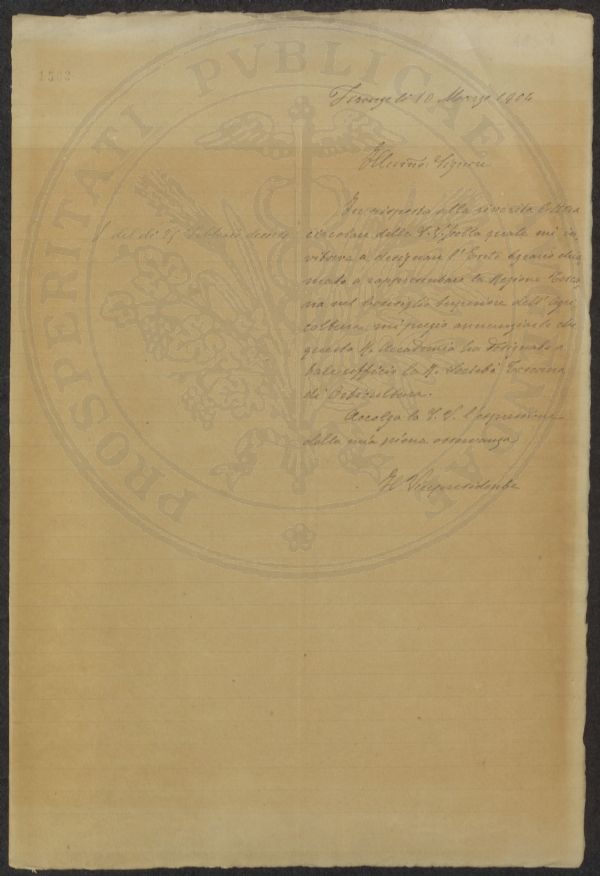 1503
PROSPERITATI PVBLICAE
Firenze li 10 Marzo 1904
Illmo Signore
In risposta alla riverita lettera
circolare della S. V. colla quale mi in-
vitava a designare l'Ente Agrario chia
mato a rappresentare la Regione Tosca
na nel Consiglio Superiore dell'Agri
coltura, mi pregio annunziarle che
questa R. Accademia ha designato a
tale ufficio la R. Società Toscana
di Orticultura.
Accolga la S. V. l'espressione
della mia piena osservanza
Il Vicepresidente